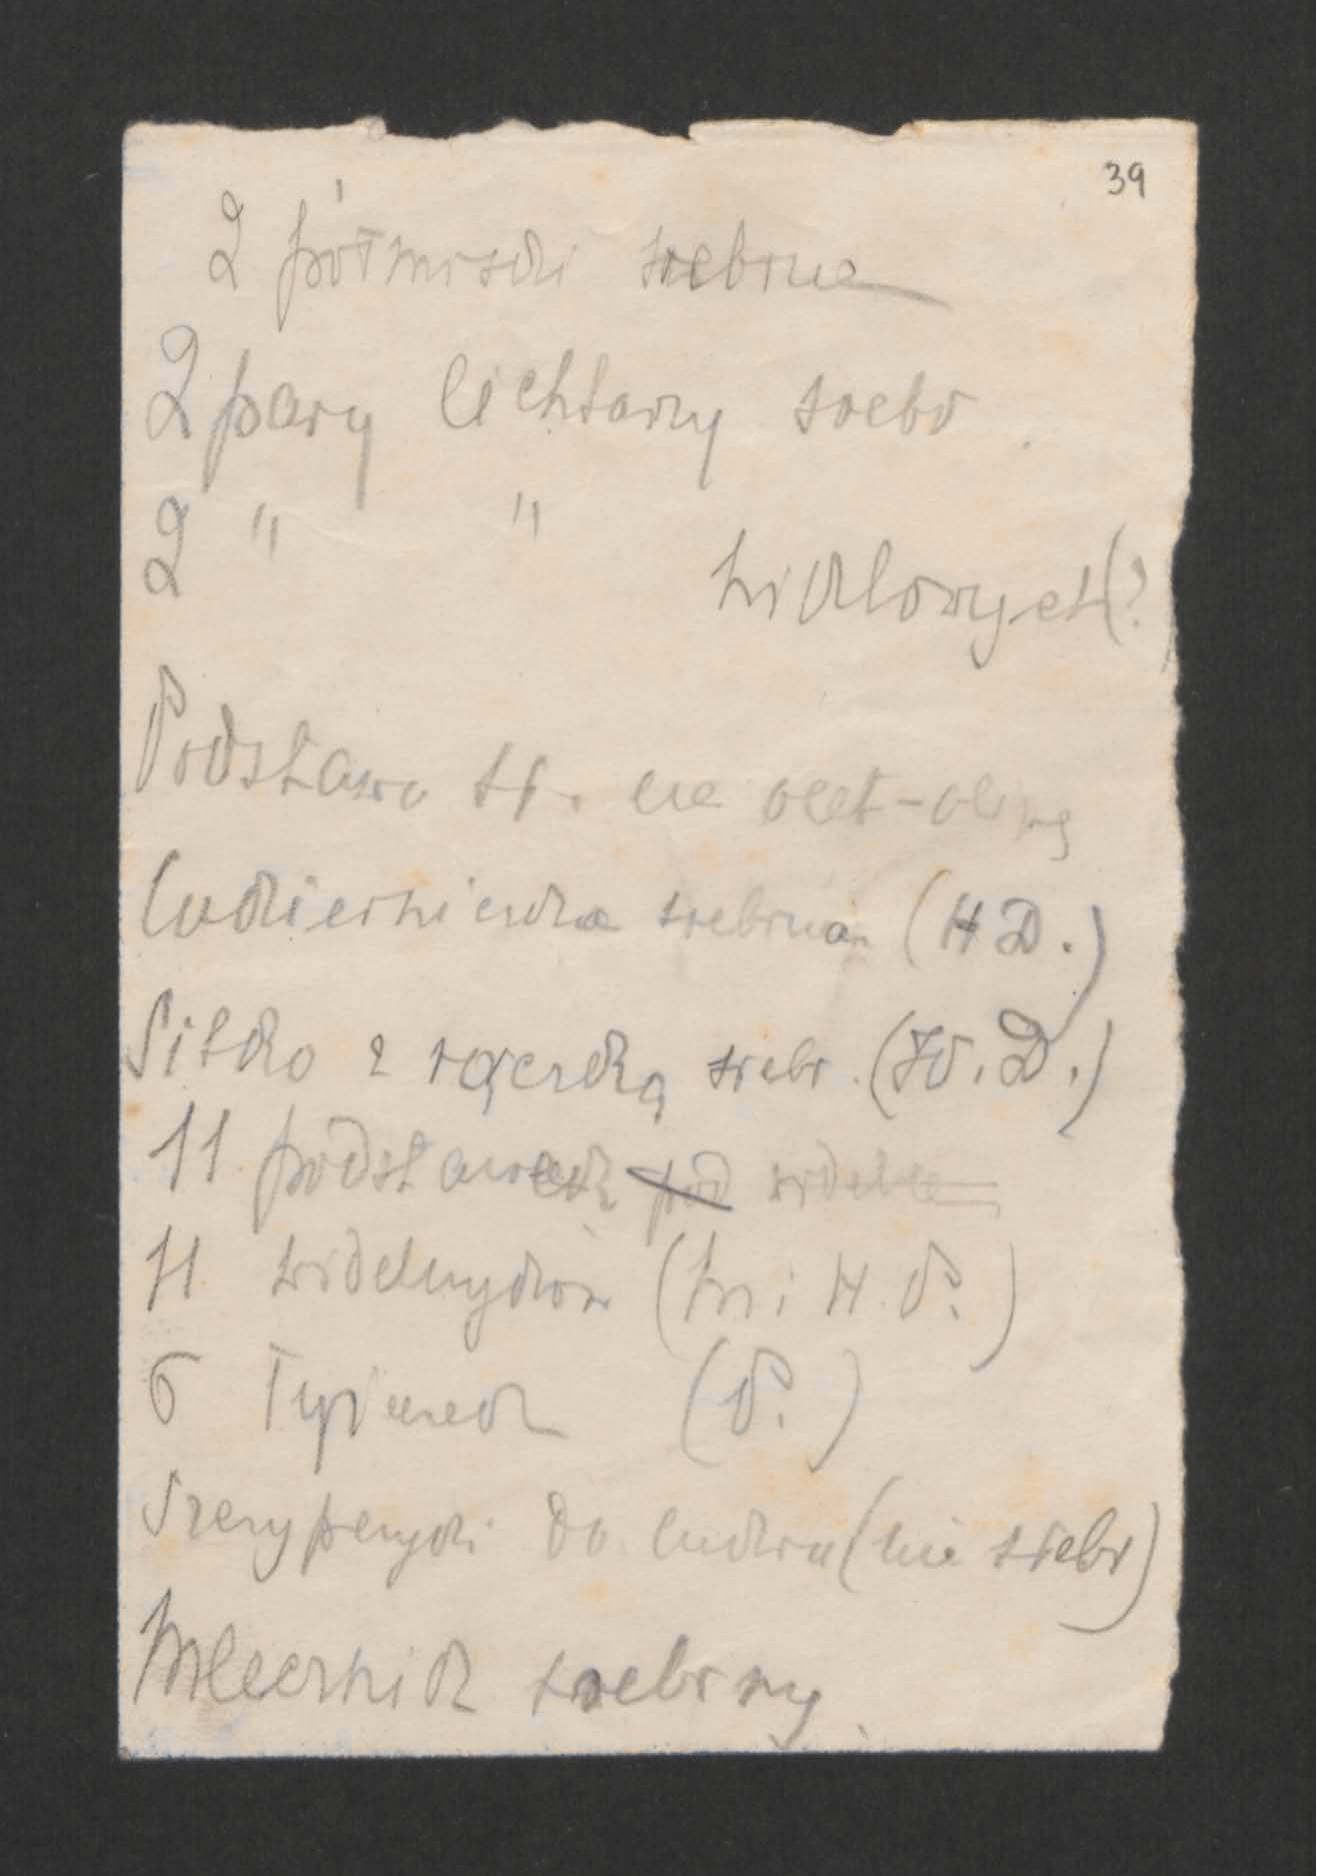 39
2 półmiski srebrne
2 pary lichtarzy srebr.
2 " " niklowych (?)
Podstawa sr. na ocet-oliwę
Cukierniczka srebrna (H D.)
Sitko z rączką srebr. (W. D.)
11 podstawek pod widelce
11 widelczyków (M i H. P.)
6 łyżeczek (P.)
Szczypczyki do cukru (nie srebr)
Mlecznik srebrny.